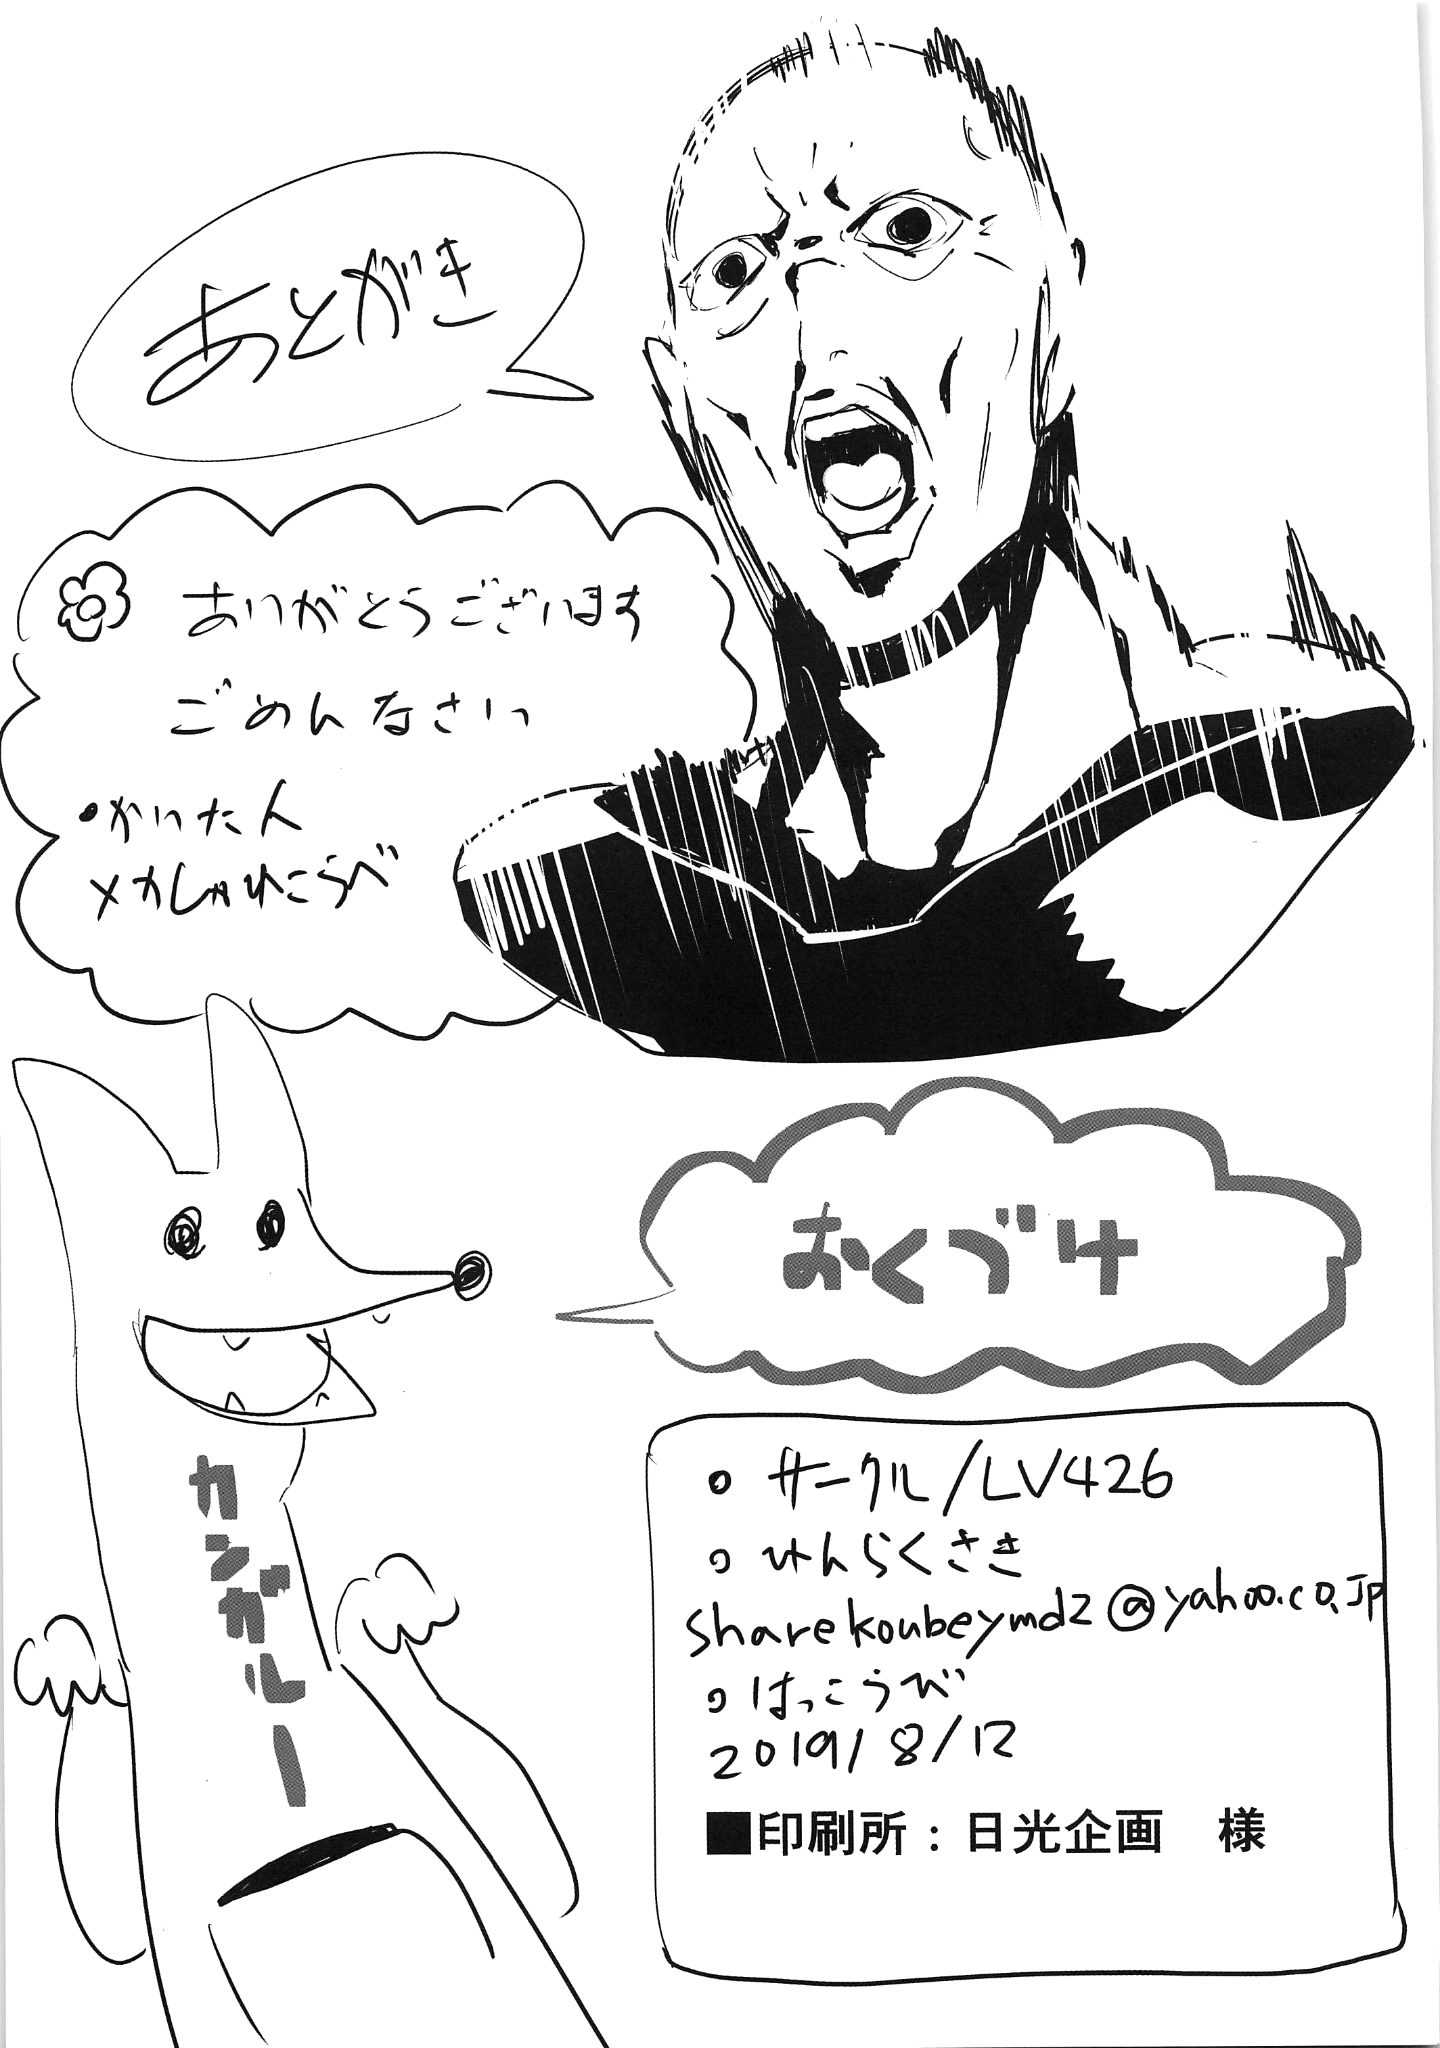 あとがき
ありがとうございます
ごめんなさいっ
・かいた人
メカしゃれこうべ
おくづけ
カンガルー
・サークル/LV426
・れんらくさき
sharekoubeymd2@yahoo.co.jp
・はっこうび
2019/8/12
■印刷所：日光企画　様